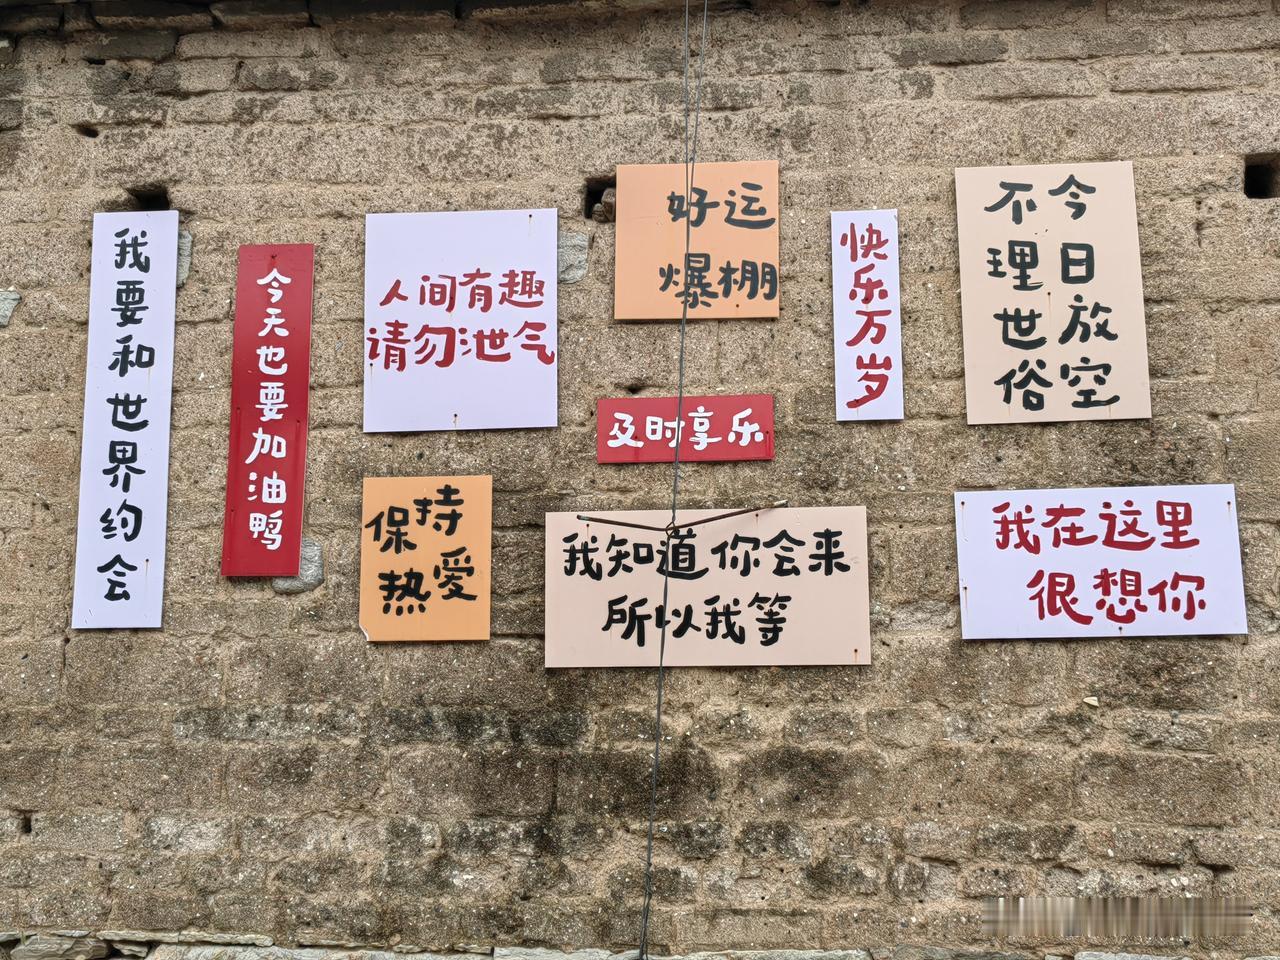 我要和世界约会
今天也要加油鸭
人间有趣
请勿泄气
好运
爆棚
快乐万岁
今日放空
不理世俗
及时享乐
保持
热爱
我知道你会来
所以我等
我在这里
很想你